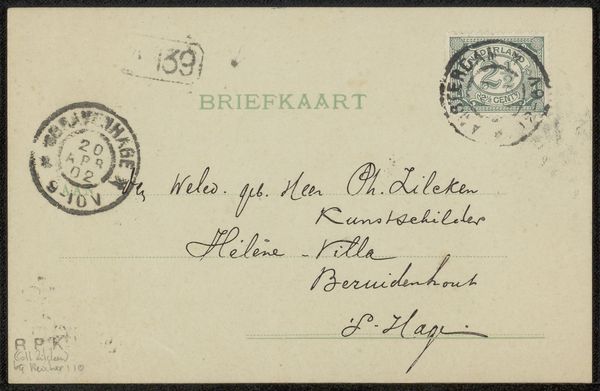 139
BRIEFKAART
NEDERLAND
2½
2½ CENT
AMSTERDAM
'S GRAVENHAGE
20
APR
02
9-10V
Weled. geb. Heer Ph. Zilcken
Kunstschilder
Hélène-Villa
Bezuidenhout
's-Hage.
R.P.K.